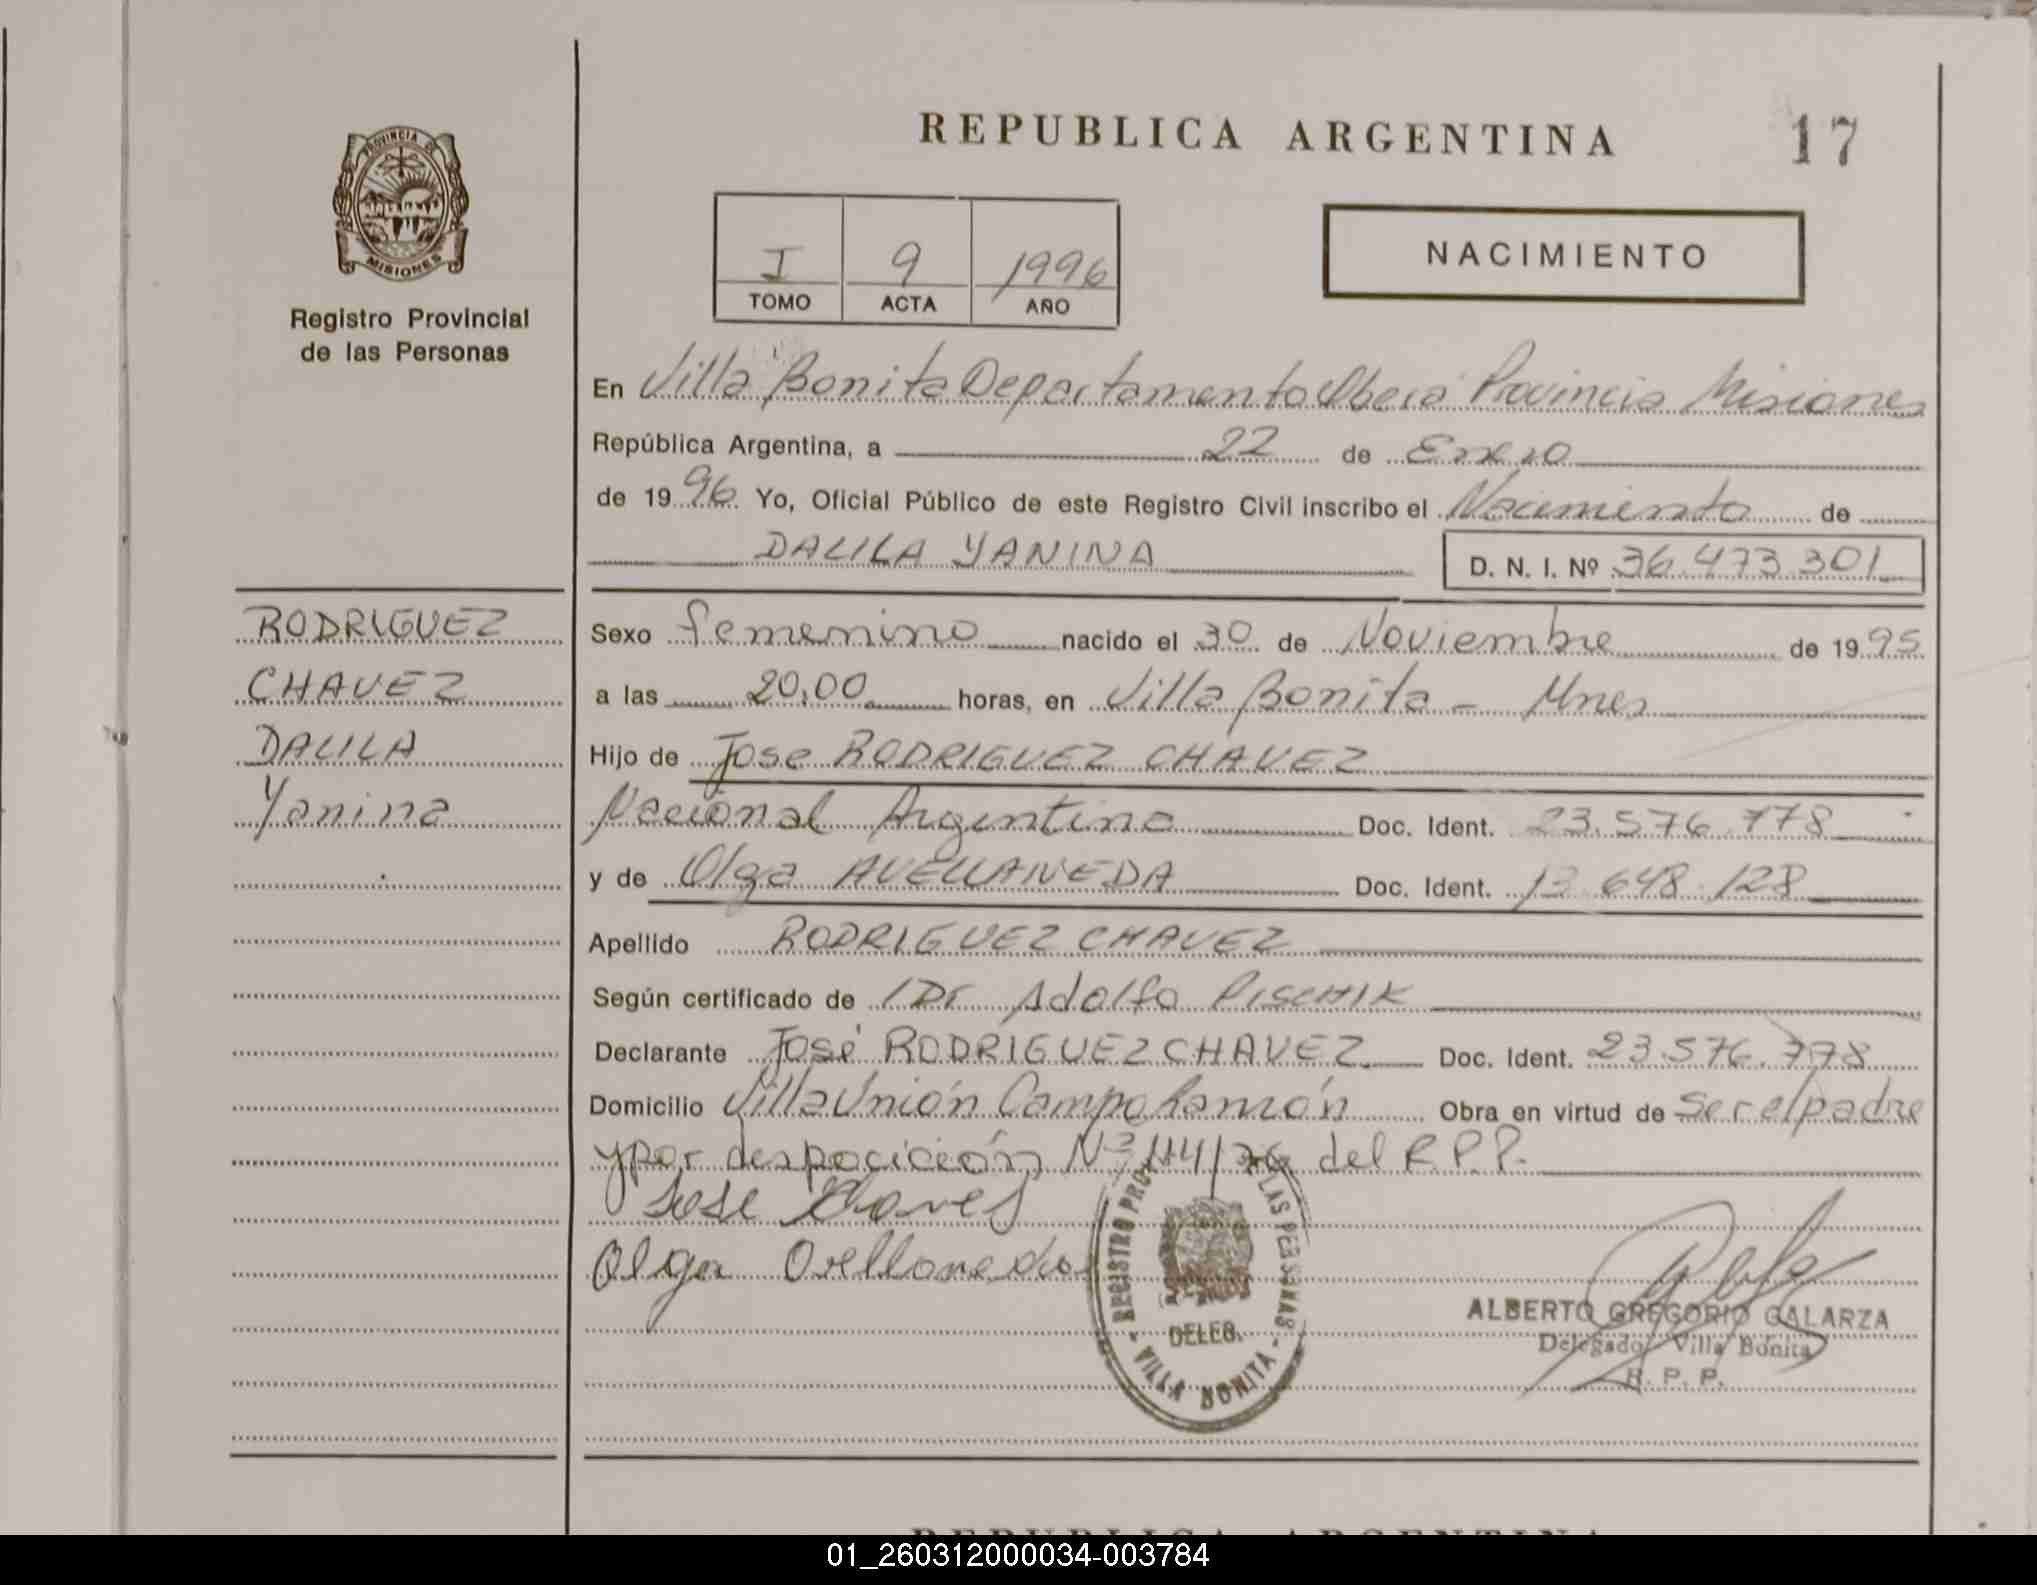 REPUBLICA ARGENTINA
17
PROVINCIA DE
MISIONES
Registro Provincial
de las Personas
I 9 1996
TOMO ACTA AÑO
NACIMIENTO
En Villa Bonita Departamento Oberá Provincia Misiones
República Argentina, a 22 de Enero
de 1996 Yo, Oficial Público de este Registro Civil inscribo el Nacimiento de
DALILA YANINA D. N. I. Nº 36.473.301
RODRIGUEZ
CHAVEZ
DALILA
Yanina
Sexo femenino nacido el 30 de Noviembre de 1995
a las 20,00 horas, en Villa Bonita - Mnes
Hijo de Jose RODRIGUEZ CHAVEZ
Nacional Argentino Doc. Ident. 23.576.778
y de Olga AVELLANEDA Doc. Ident. 13.648.128
Apellido RODRIGUEZ CHAVEZ
Según certificado de Dr Adolfo PISCHIK
Declarante José RODRIGUEZ CHAVEZ Doc. Ident. 23.576.778
Domicilio Villa Unión Campo Ramón Obra en virtud de ser el padre
y por desposición Nº /76 del R.P.P.
Jose Chaves
Olga Orellanedo
REGISTRO PRO LAS PERSONAS
DELEG.
- VILLA BONITA -
ALBERTO GREGORIO GALARZA
Delegado Villa Bonita
R. P. P.
REPUBLICA ARGENTINA
01_260312000034-003784